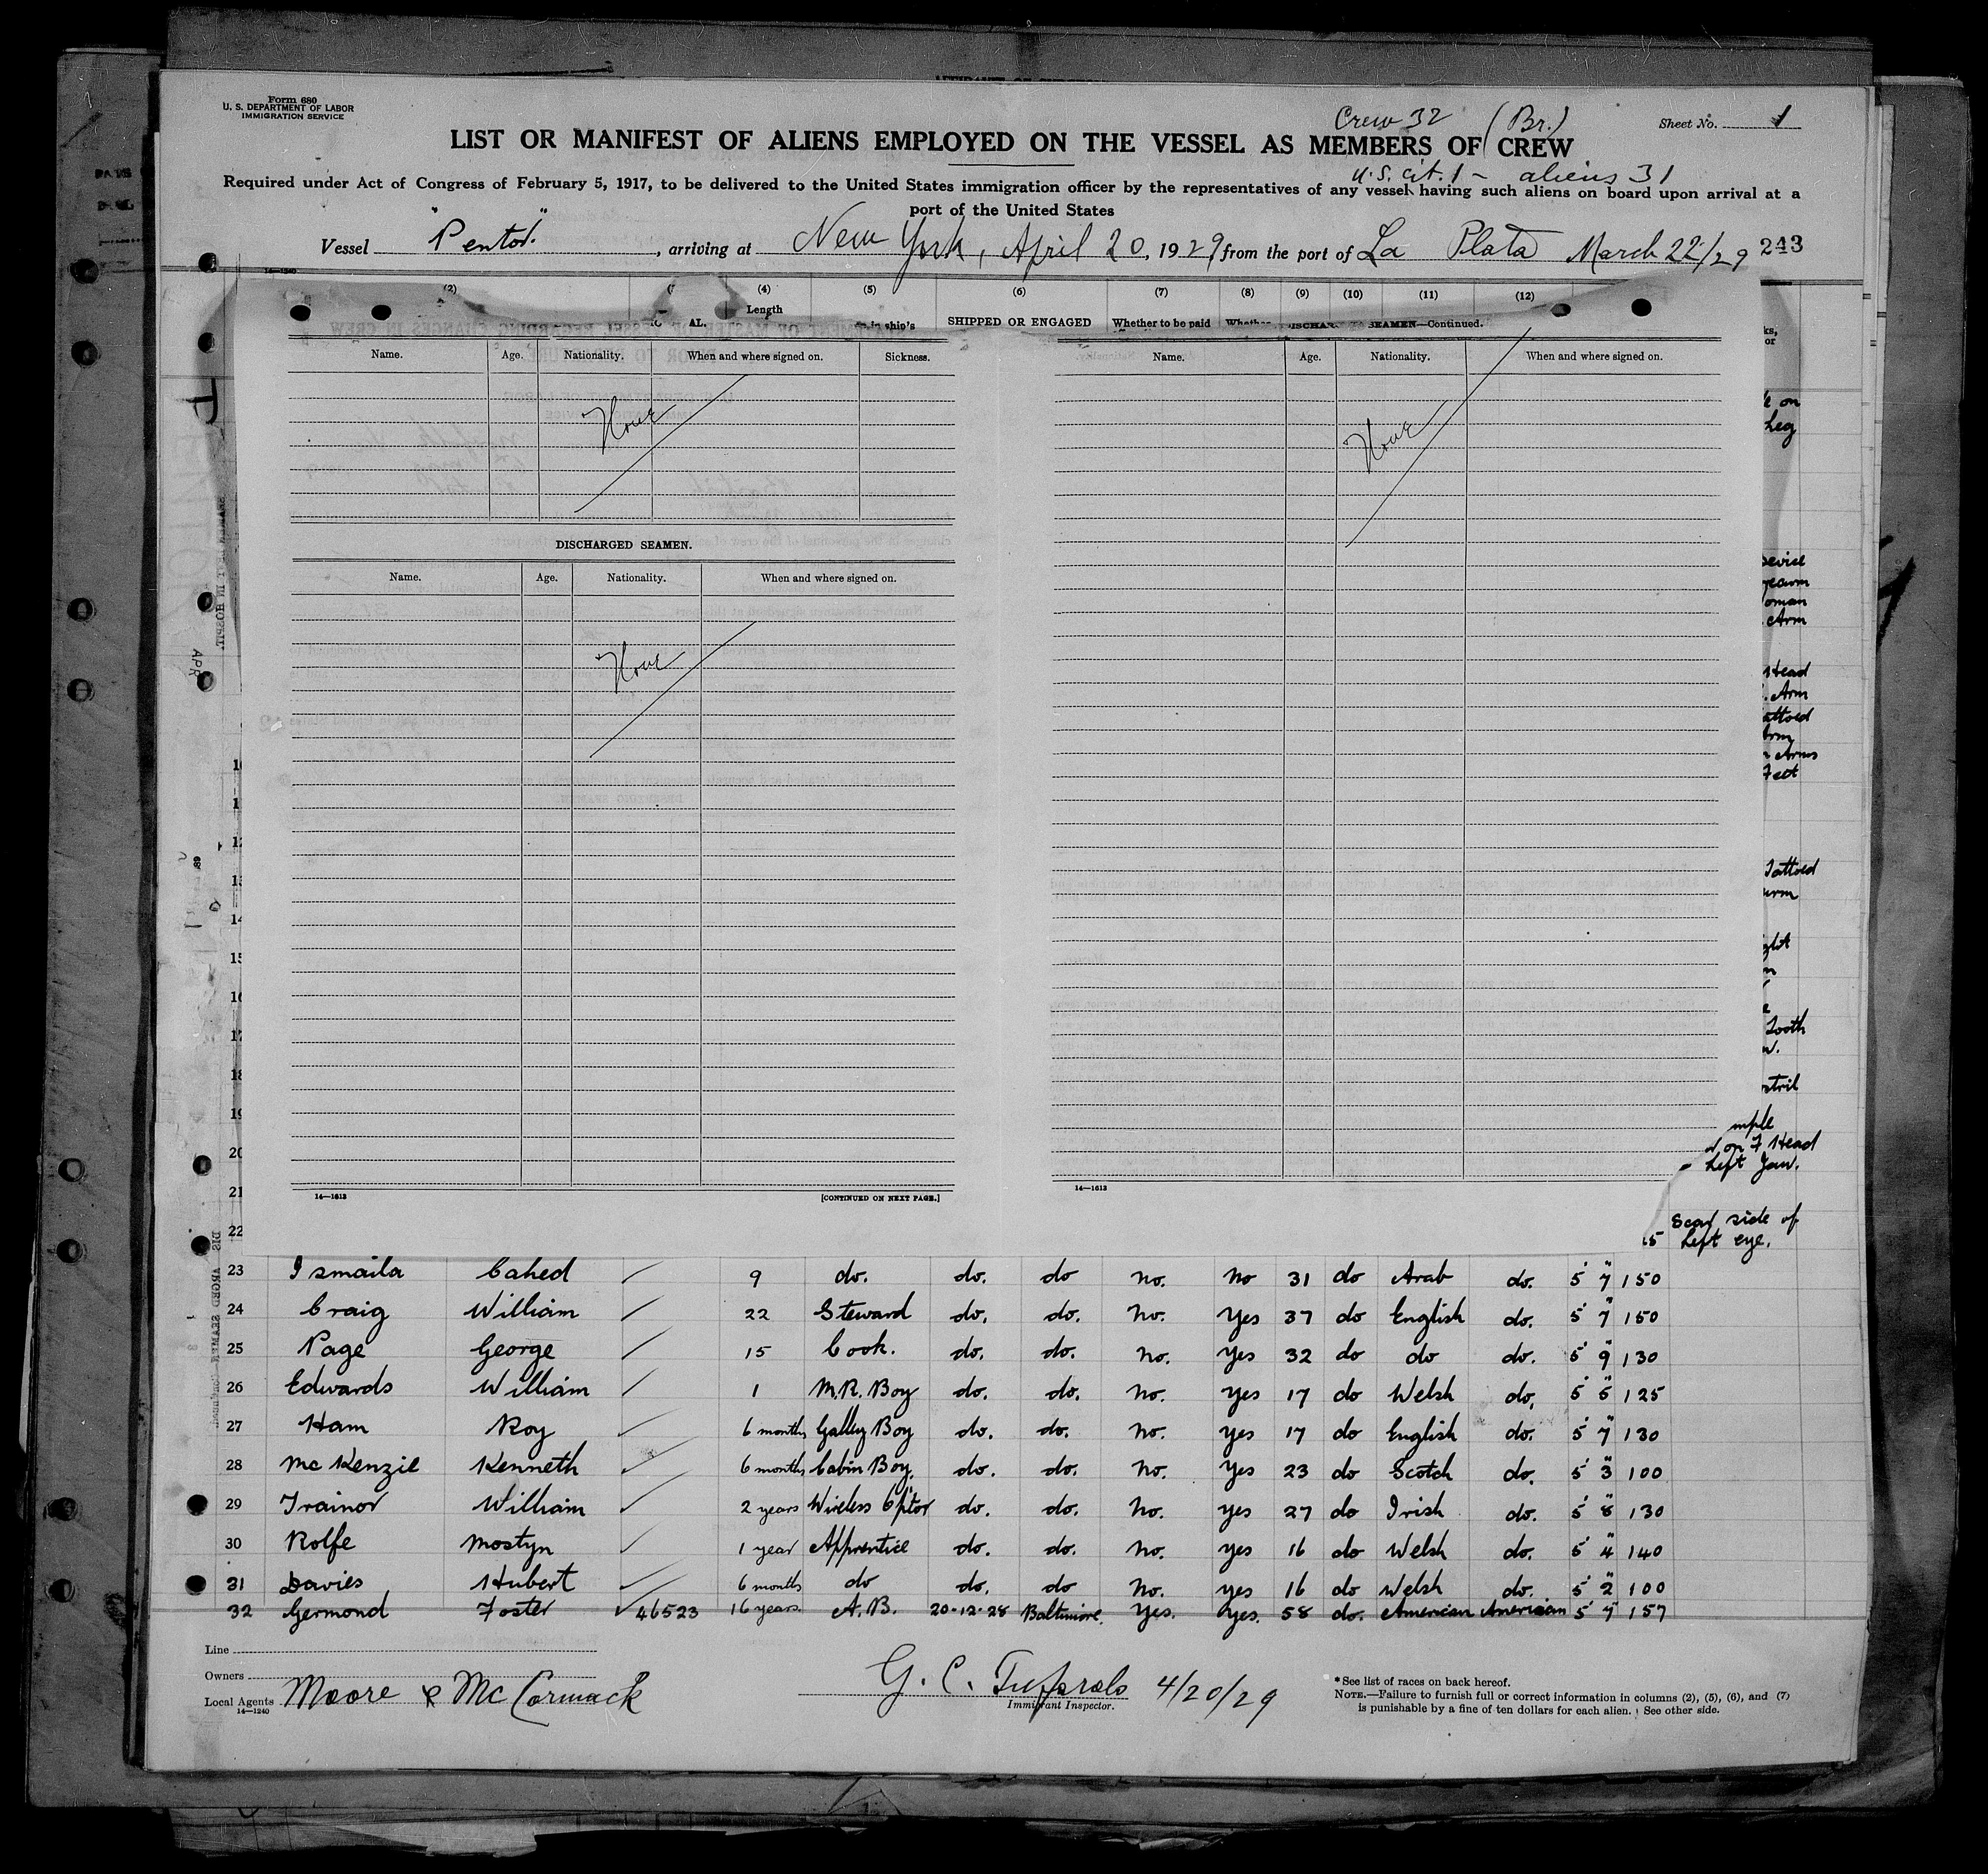 Form 680
U. S. DEPARTMENT OF LABOR
IMMIGRATION SERVICE
Crew 32 (Br.)
Sheet No. 1
LIST OR MANIFEST OF ALIENS EMPLOYED ON THE VESSEL AS MEMBERS OF CREW
U.S. Cit. 1 - aliens 31
Required under Act of Congress of February 5, 1917, to be delivered to the United States immigration officer by the representatives of any vessel having such aliens on board upon arrival at a
port of the United States
Vessel , arriving at New York, April 20, 1929 from the port of La Plata March 22/29 243
14—1240
(2) (4) (5) (6) (7) (8) (9) (10) (11) (12)
Length
ship's SHIPPED OR ENGAGED Whether to be paid Whether SEAMEN—Continued.
Name. Age. Nationality. When and where signed on. Sickness.
None
DISCHARGED SEAMEN.
Name. Age. Nationality. When and where signed on.
None
14—1613 [CONTINUED ON NEXT PAGE.]
Name. Age. Nationality. When and where signed on.
None
14—1613
on
Leg
Arm
Head
Arm
Arms
Feet
Tattoed
Tooth
on F Head
Left Jaw.
Scar side of
Left eye.
12
14
15
16
18
20
21
22
23 Ismaila Cahed 9 do. do. do No. No 31 do Arab do. 5' 7" 150
24 Craig William 22 Steward do. do. No. Yes 37 do English do. 5' 7" 150
25 Page George 15 Cook. do. do. No. Yes 32 do do do. 5' 9" 130
26 Edwards William 1 M.R. Boy do. do. No. Yes 17 do Welsh do. 5' 5" 125
27 Ham Roy 6 months Galley Boy do. do. No. Yes 17 do English do. 5' 7" 130
28 McKenzie Kenneth 6 months Cabin Boy. do. do. No. Yes 23 do Scotch do. 5' 3" 100
29 Trainor William 2 years Wireless Op'tor do. do. No. Yes 27 do Irish do. 5' 8" 130
30 Rolfe Mostyn 1 year Apprentice do. do. No. Yes 16 do Welsh do. 5' 4" 140
31 Davies Hubert 6 months do do. do No. Yes 16 do Welsh do. 5' 2" 100
32 Germond Foster 46523 16 years. A.B. 20-12-28 Baltimore. Yes. Yes. 58 do. American American 5' 7" 157
Line
Owners
Local Agents Moore & McCormack
14—1240
G. C. 4/20/29
Immigrant Inspector.
* See list of races on back hereof.
NOTE.—Failure to furnish full or correct information in columns (2), (5), (6), and (7)
is punishable by a fine of ten dollars for each alien. See other side.